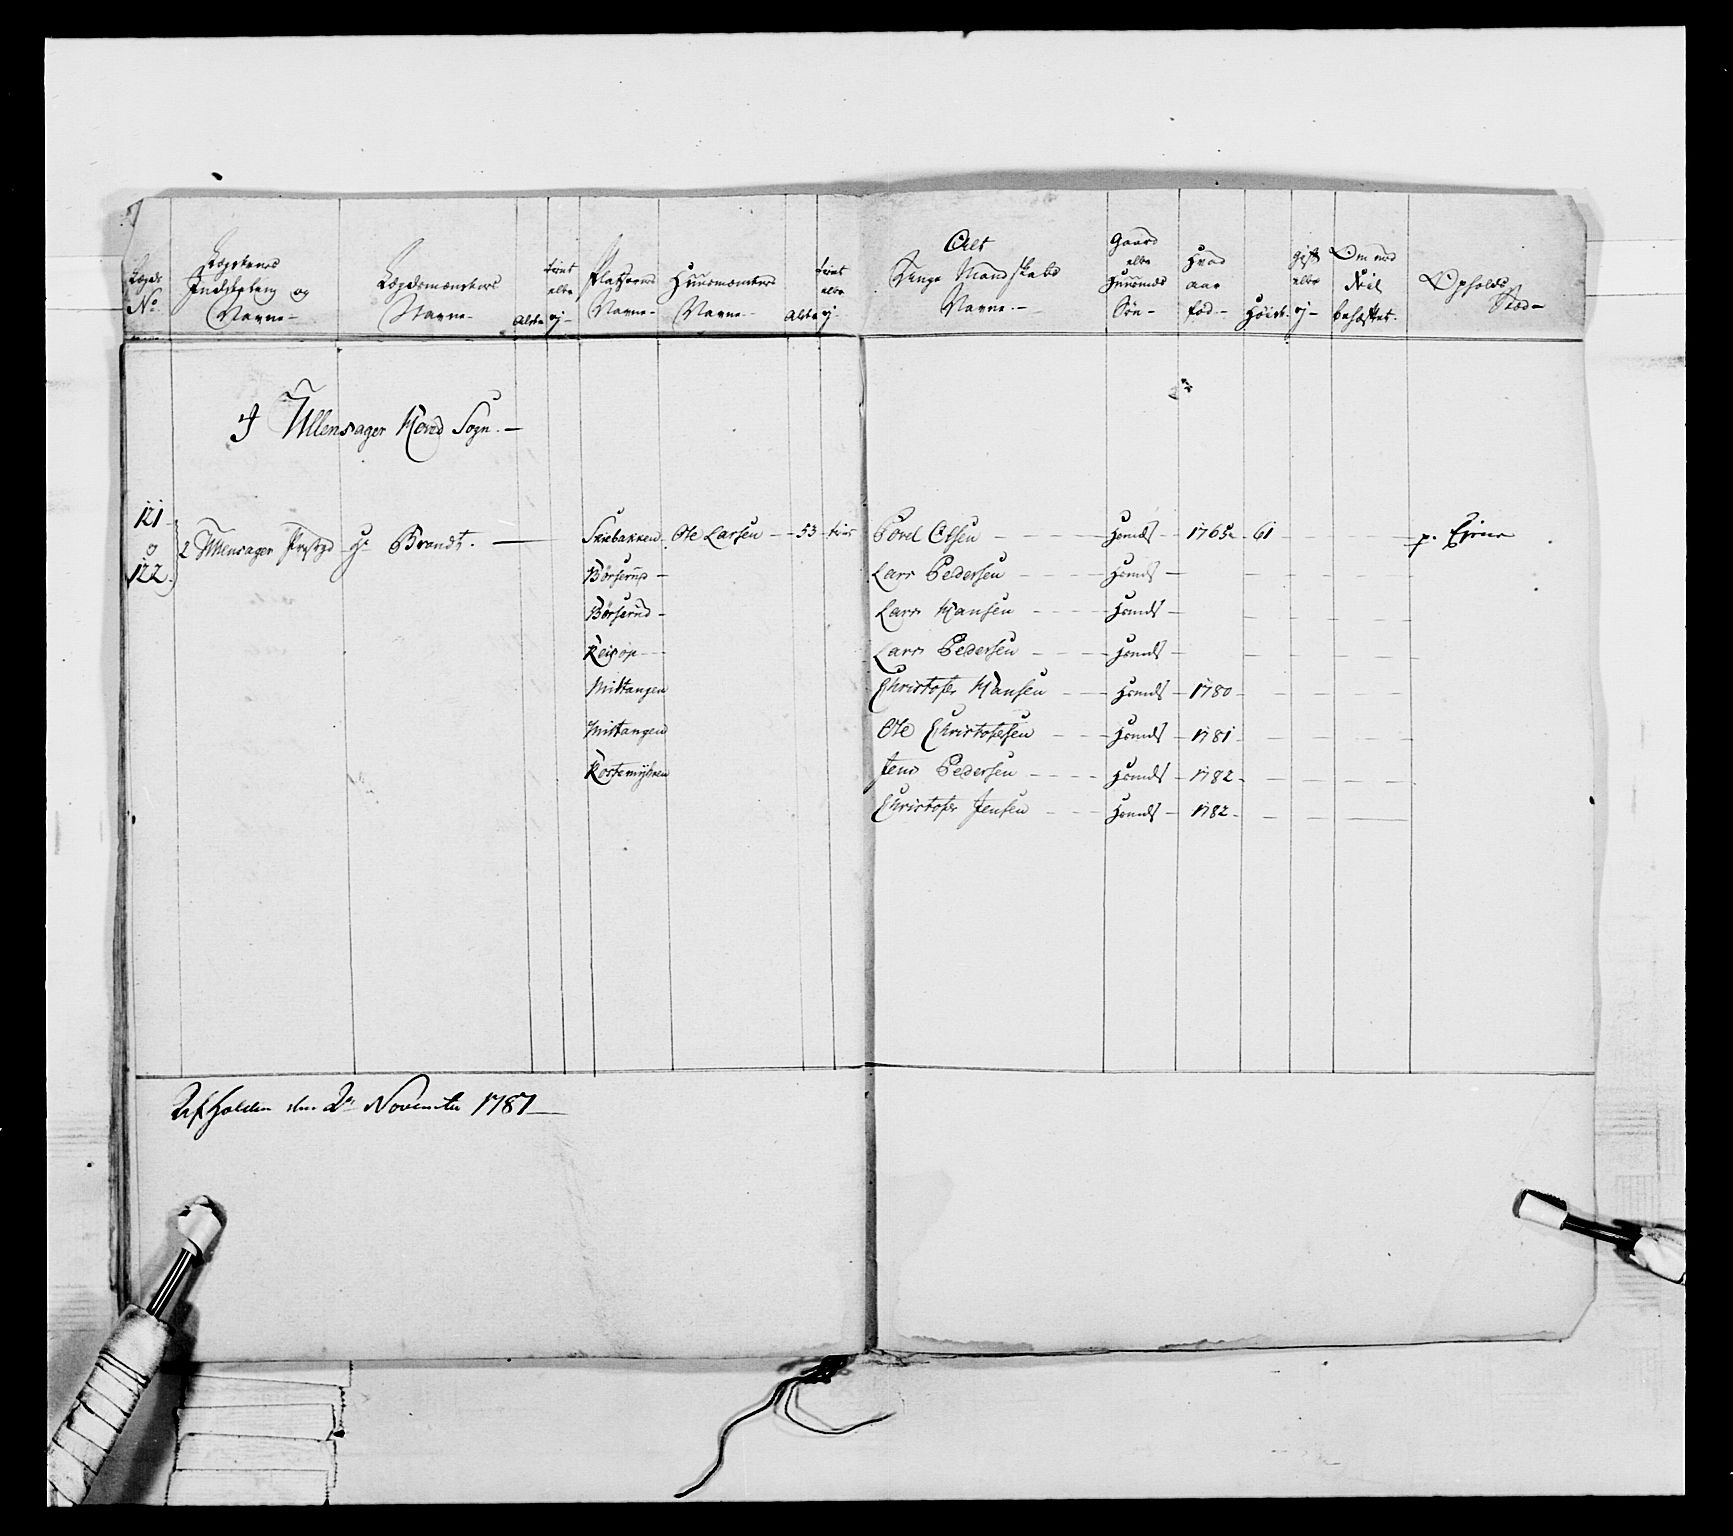 Lægds No.
Lægdenes Inddeeling og Navne
Lægdsmændenes Navne
Alder
tient eller ej
Pladsernes Navne
Huusmændenes Navne
Alder
tient eller ej
Alt Unge Mandskabs Navne
Gaard eller Huusmands Søn
Hvad aar fød
Høide
Gift eller ej
Om med Feil behæftet
Opholds Sted
Ullensager Hoved Sogn.
121 o 122. 2 Ullensager Præstgd Hr Brandt. Skiebakken Ole Larsen 53 tient Povel Olsen Huusmds 1765 61
Børserud Lars Pedersen Huusmds
Børserud Lars Hansen Huusmds
Reisop Lars Pedersen Huusmds
Mistangen Christofer Hansen Huusmds 1780
Mistangen Ole Christofersen Huusmds 1781
Kossemyhren Jens Pedersen Huusmds 1782
Christofer Jensen Huusmds 1782
Afholden den 2de November 1787